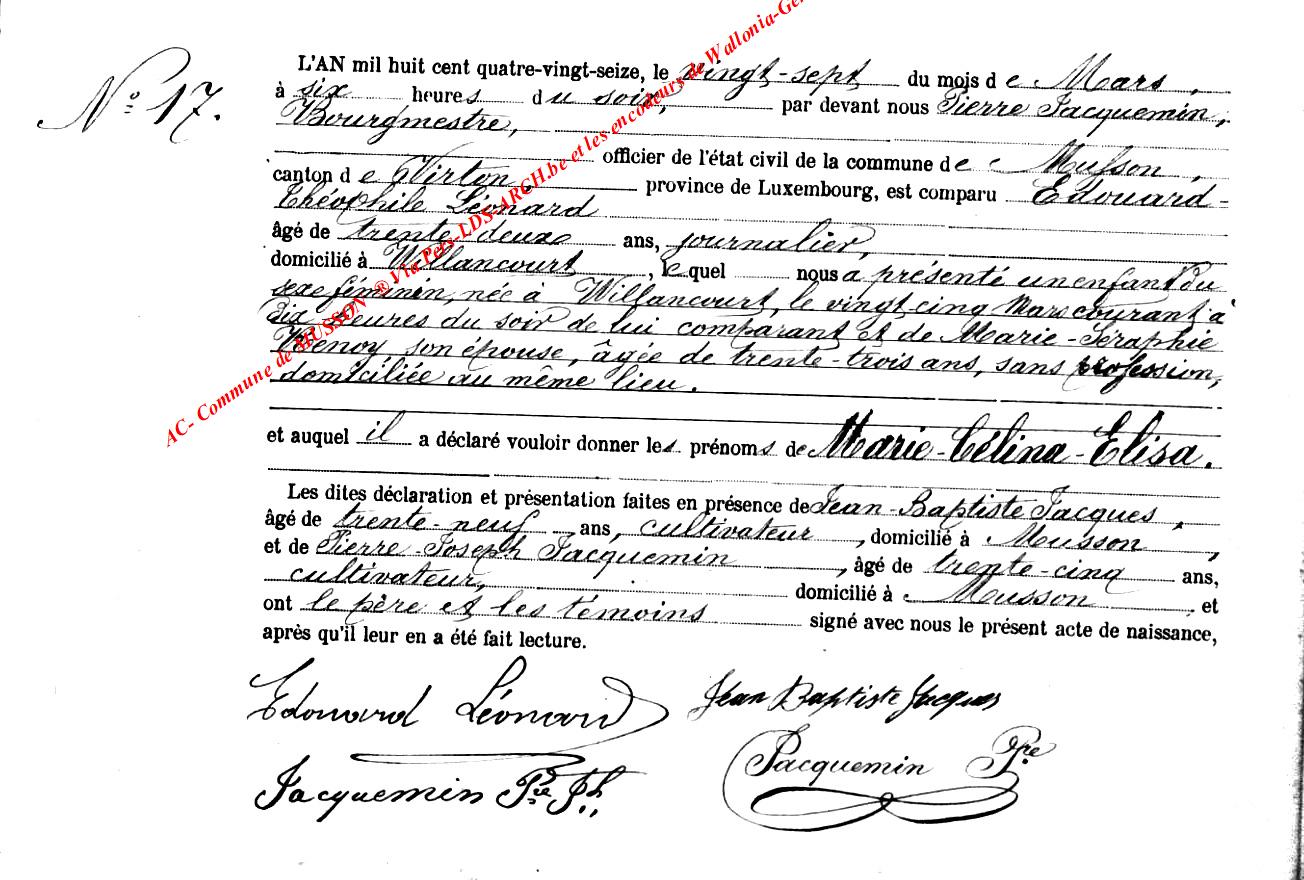 AC- Commune de MUSSON ® Via Pers-LDS-ARCH.be et les encodeurs de Wallonia-Ge
N° 17.
L'AN mil huit cent quatre-vingt-seize, le vingt-sept du mois de Mars,
à six heures du soir, par devant nous Pierre Jacquemin,
Bourgmestre,
officier de l'état civil de la commune de Musson,
canton de Virton, province de Luxembourg, est comparu Edouard-
Théophile Léonard
âgé de trente-deux ans, journalier,
domicilié à Willancourt, lequel nous a présenté un enfant du
sexe féminin, née à Willancourt, le vingt cinq Mars courant à
dix heures du soir de lui comparant et de Marie-Séraphie
son épouse, âgée de trente-trois ans, sans profession,
domiciliée au même lieu.
et auquel il a déclaré vouloir donner les prénoms de Marie-Célina-Elisa.
Les dites déclaration et présentation faites en présence de Jean-Baptiste Jacques,
âgé de trente-neuf ans, cultivateur, domicilié à Musson,
et de Pierre-Joseph Jacquemin, âgé de trente-cinq ans,
cultivateur, domicilié à Musson, et
ont le père et les témoins signé avec nous le présent acte de naissance,
après qu'il leur en a été fait lecture.
Edouard Léonard Jean Baptiste Jacques
Jacquemin Pre Jh. Jacquemin Pre